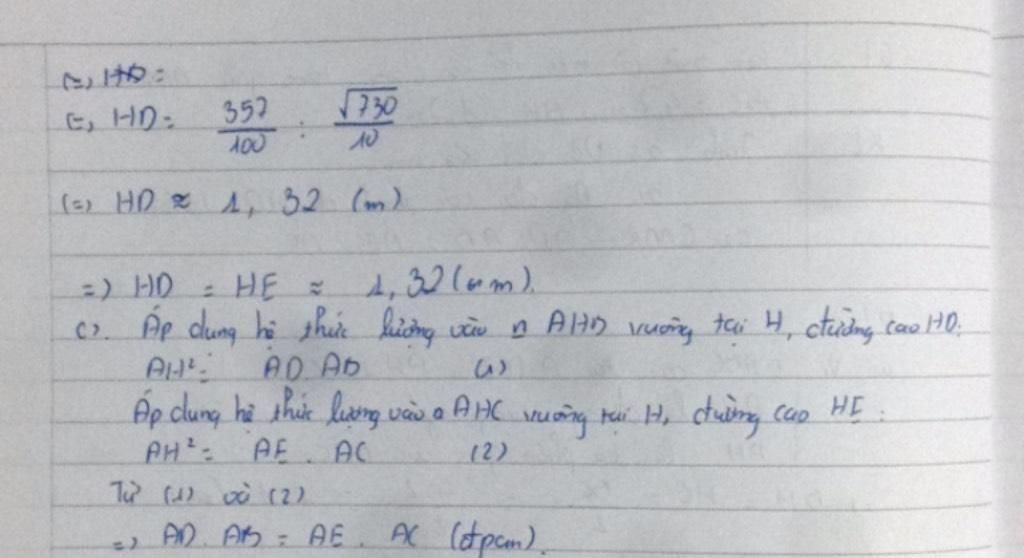 (=) HD =
(=) HD = 357/100 : √730/10
(=) HD ≈ 1,32 (m)
=) HD = HE ≈ 1,32 (m).
c). Áp dụng hệ thức lượng vào Δ AHB vuông tại H, đường cao HD:
AH² = AD. AB (1)
Áp dụng hệ thức lượng vào Δ AHC vuông tại H, đường cao HE:
AH² = AE . AC (2)
Từ (1) và (2)
=) AD. AB = AE . AC (đpcm).